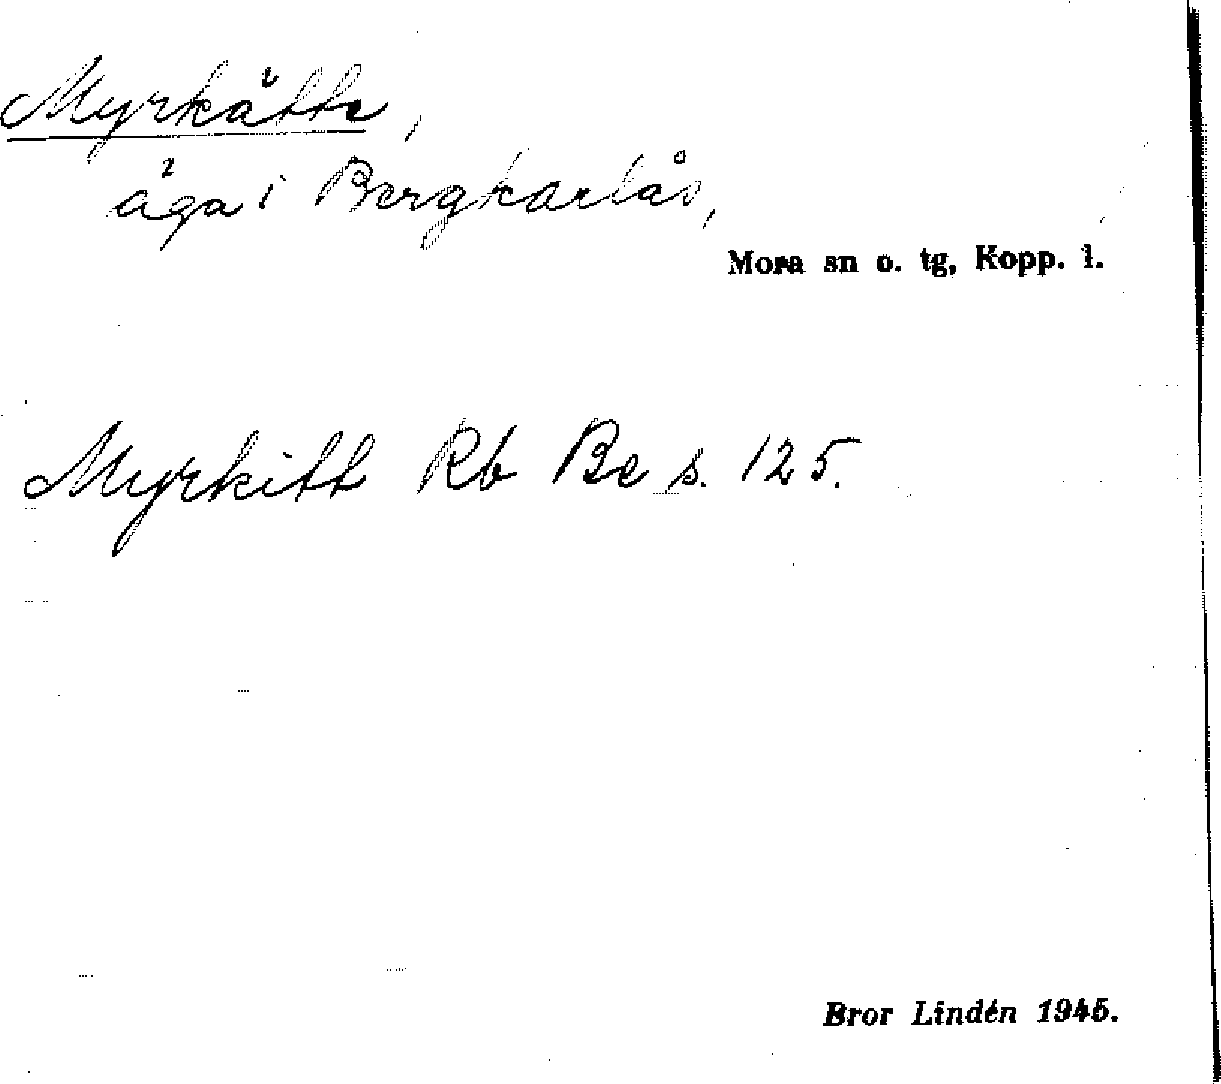 Myrkätte,
äga i Bergkarlås,
Mora sn o. tg, Kopp. l.
Myrkitt Rb Be s. 125.
Bror Lindén 1945.